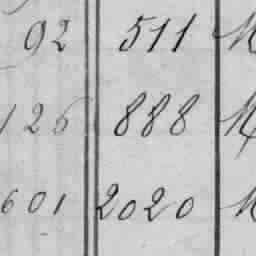 92 511 M
126 888 M
601 2020 M